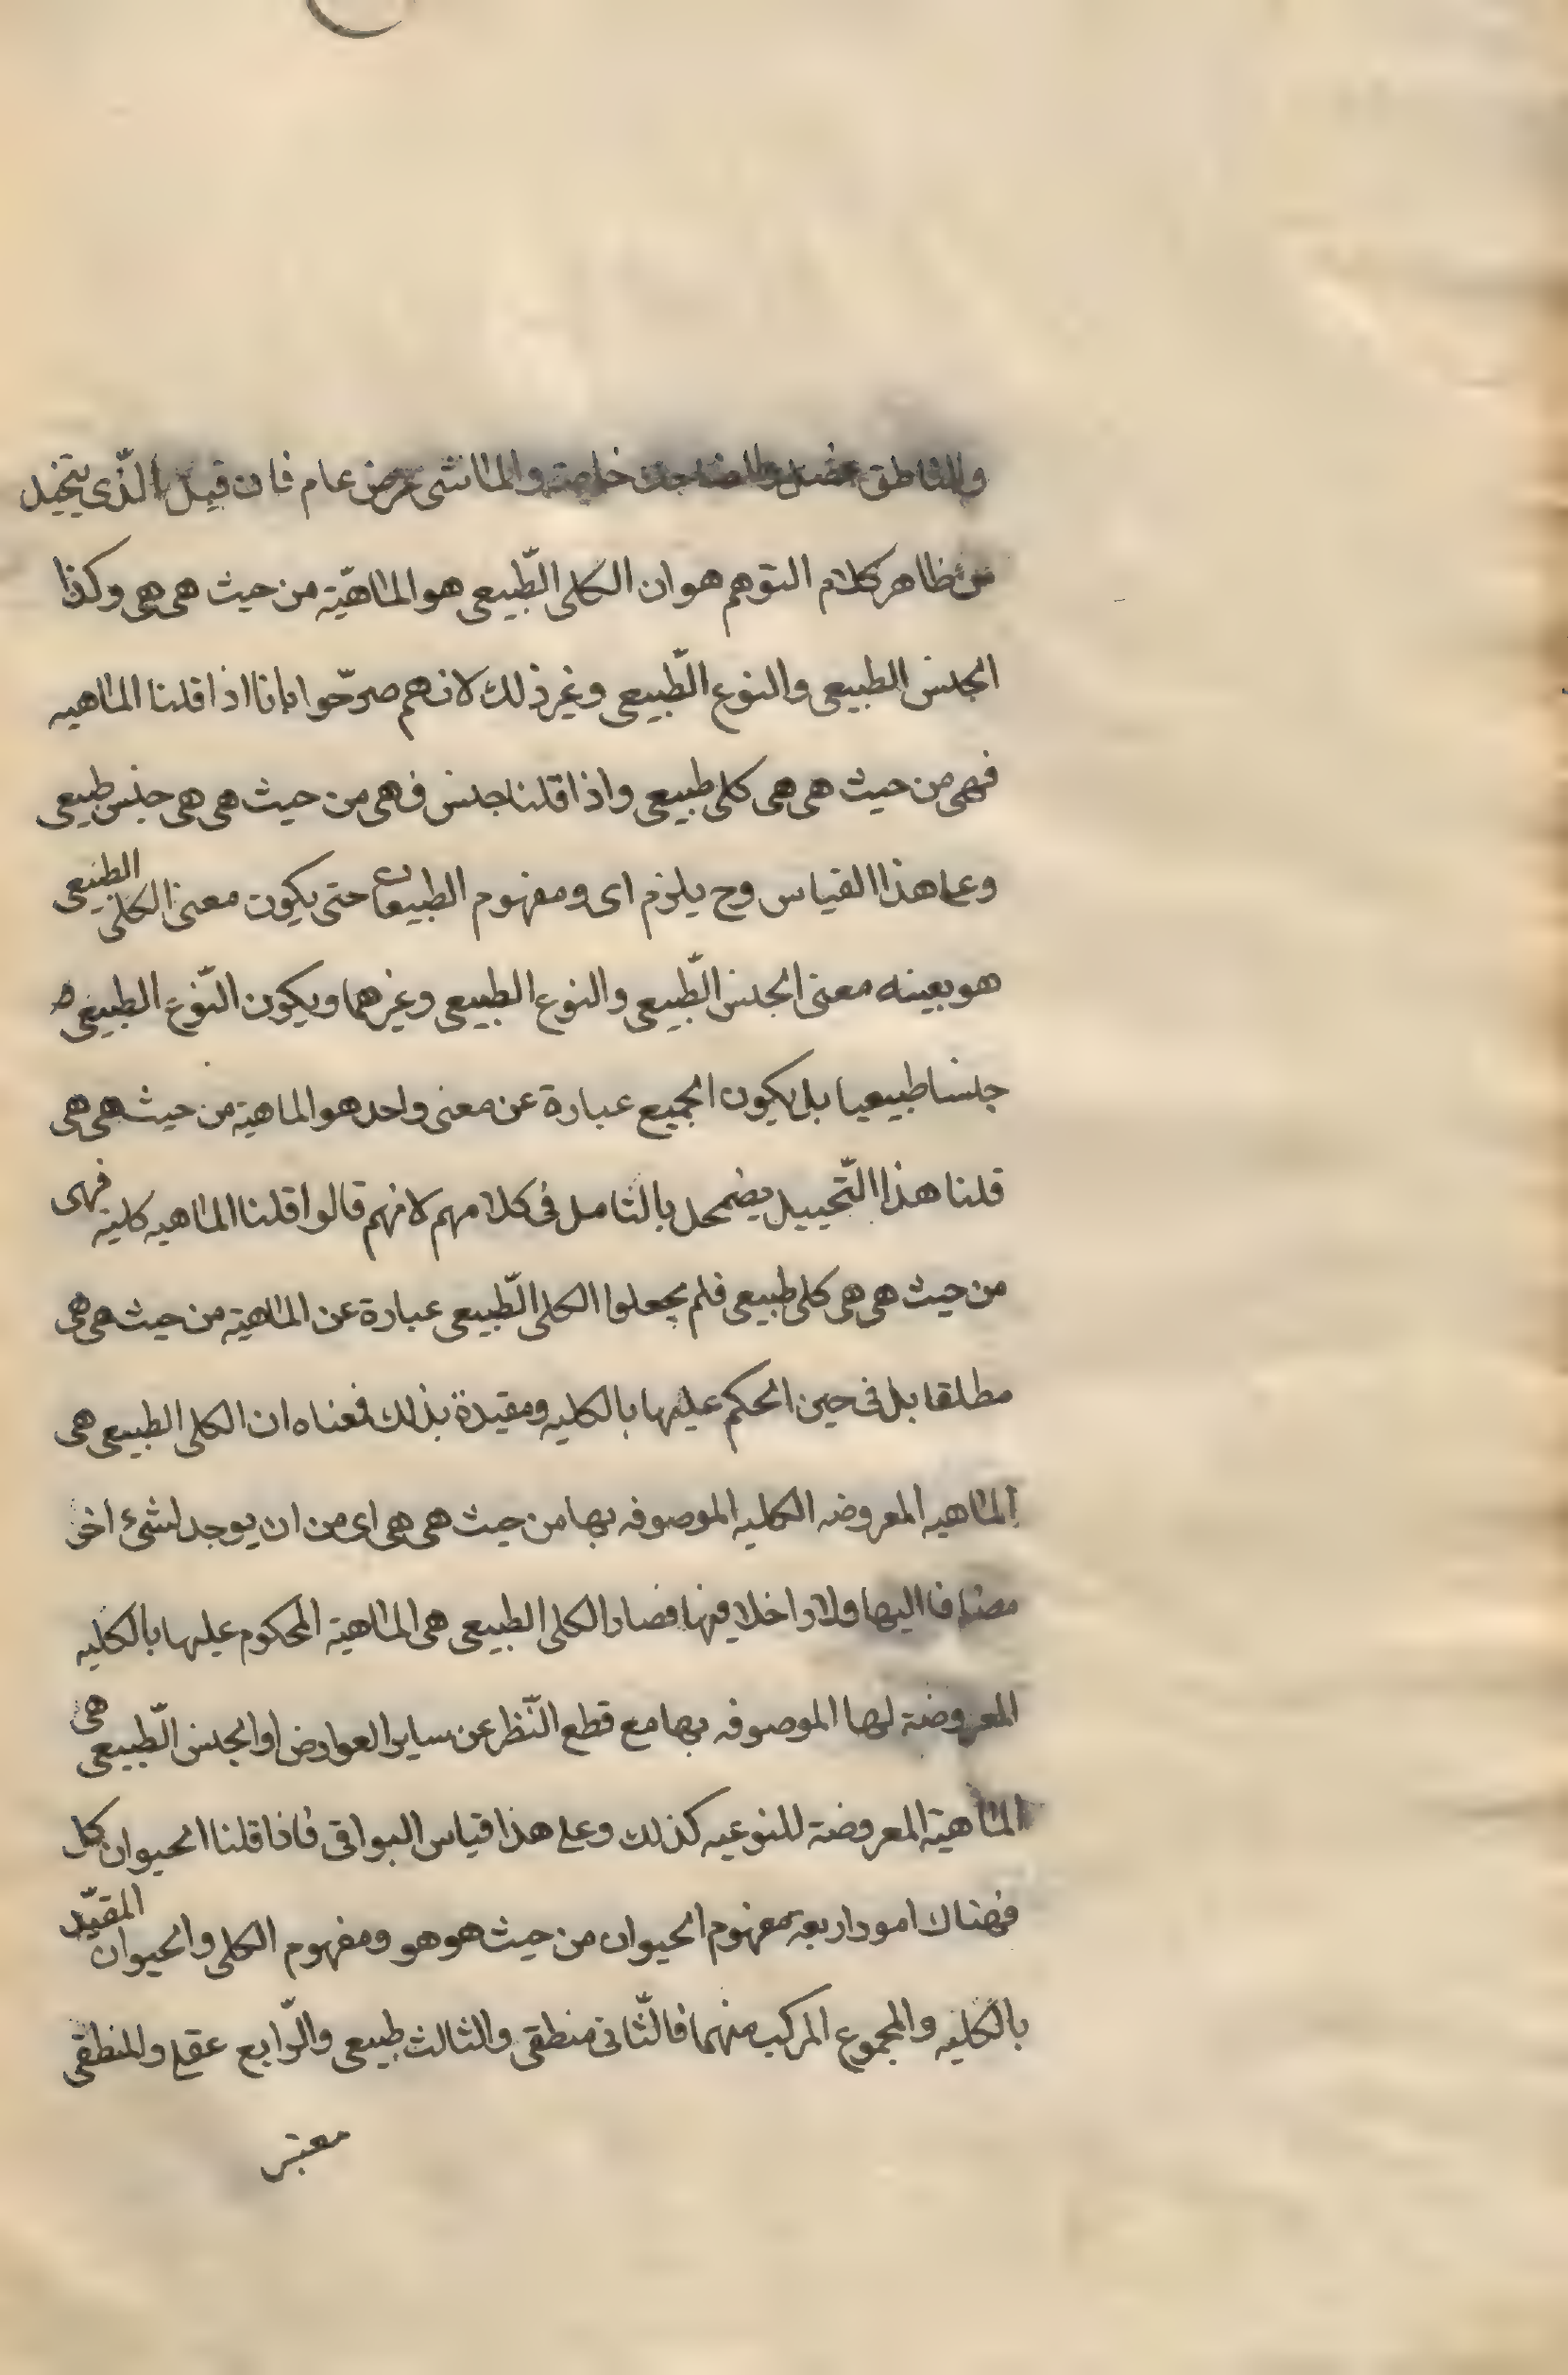 والناطق فصل والضاحك خاصة والماشى عرض عام فان قيل الّذى يتخيل
من ظاهر كلام التوهم هو ان الكلى الطّبيعى هو الماهيّة من حيث هى هى وكذا
الجنس الطبيعى والنوع الطّبيعى وغير ذلك لانهم صرّحوا بانا اذا قلنا الماهيه
فهى من حيث هى هى كلى طبيعى واذا قلنا جنس فهى من حيث هى هى جنس طبيعى
وعلى هذا القياس وح يلزم اى ومفهوم الطبيعات حتى يكون معنى الكلى الطبيعى
هو بعينه معنى الجنس الطّبيعى والنوع الطبيعى وغيرهما ويكون النّوع الطبيعى
جنسا طبيعيا بل يكون الجميع عبارة عن معنى واحد هو الماهية من حيث هى هى
قلنا هذا التّخييل يضمحل بالتامل فى كلامهم لانهم قالوا قلنا الماهيه كلية فهى
من حيث هى هى كلى طبيعى فلم يجعلوا الكلى الطّبيعى عبارة عن الماهية من حيث هى هى
مطلقا بل فى حين الحكم عليها بالكليه ومقيدة بذلك فمعناه ان الكلى الطبيعى هى
الماهيه المعروضه الكليه الموصوفه بها من حيث هى هى اى من ان يوجد لشئ اخر
مضافا اليها ولا داخلا فيها فصار الكلى الطبيعى هى الماهية المحكوم عليها بالكليه
المعروضة لها الموصوفه بها مع قطع النّظر عن ساير العوارض او الجنس الطّبيعى هى
الماهية المعروضة للنوعيه كذلك وعلى هذا قياس البواقى فاذا قلنا الحيوان كل
فهناك امور اربعه مفهوم الحيوان من حيث هو هو ومفهوم الكلى والحيوان المقيّد
بالكليه والمجموع المركب منهما فالثّانى منطقى والثالث طبيعى والرّابع عقلى والمنطقى
معتبر